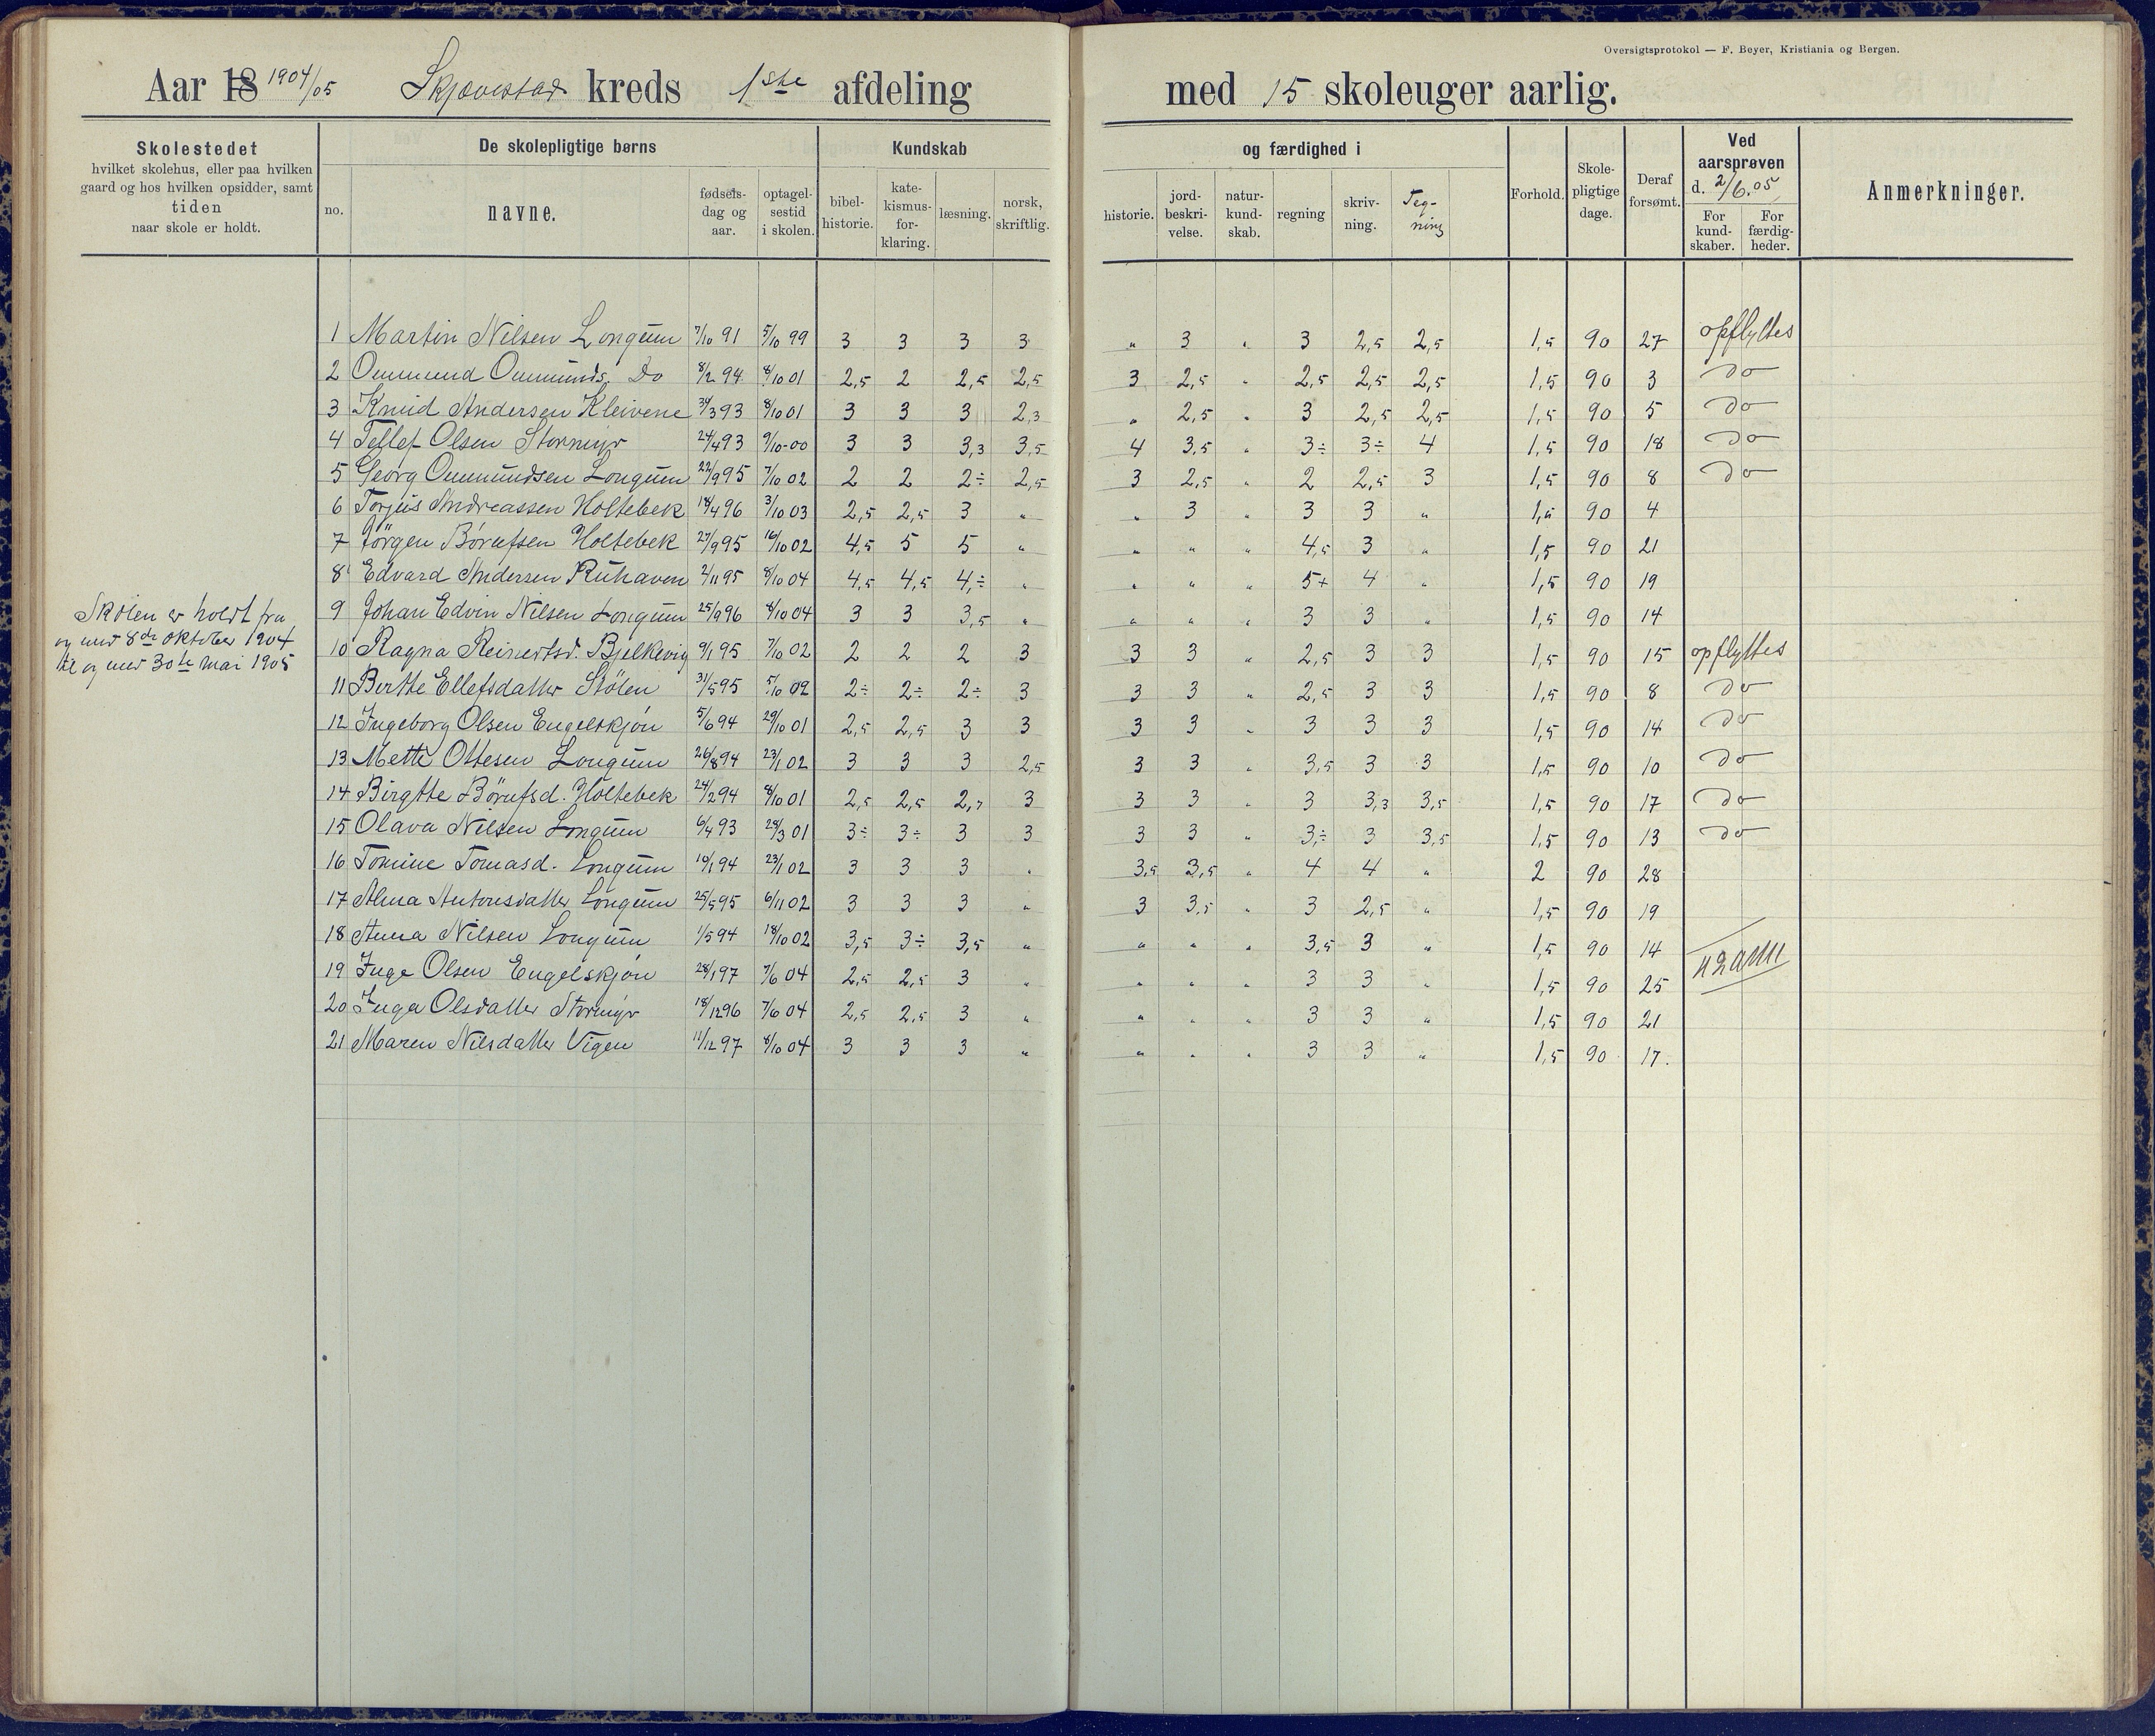 Oversigtsprotokol — F. Beyer, Kristiania og Bergen.
Aar 18 1904/05 Skjævestad kreds 1ste afdeling med 15 skoleuger aarlig.
Skolestedet
hvilket skolehus, eller paa hvilken
gaard og hos hvilken opsidder, samt
tiden
naar skole er holdt.
De skolepligtige børns
no.
navne.
fødsels-
dag og
aar.
optagel-
sestid
i skolen.
Kundskab
bibel-
historie.
kate-
kismus-
for-
klaring.
læsning.
norsk,
skriftlig.
og færdighed i
historie.
jord-
beskri-
velse.
natur-
kund-
skab.
regning
skriv-
ning.
Teg-
ning
Forhold.
Skole-
pligtige
dage.
Deraf
forsømt.
Ved
aarsprøven
d. 2/6.05
For
kund-
skaber.
For
færdig-
heder.
Anmerkninger.
1 Martin Nilsen Longum 7/10 91 5/10 99 3 3 3 3 " 3 " 3 2,5 2,5 1,5 90 27 opflyttes
2 Ommund Ommunds. Do 8/2 94 8/10 01 2,5 2 2,5 2,5 3 2,5 " 2,5 2,5 2,5 1,5 90 3 do
3 Knud Andersen Kleivene 3/3 93 8/10 01 3 3 3 2,3 " 2,5 " 3 2,5 2,5 1,5 90 5 do
4 Tellef Olsen Stormyr 24/4 93 9/10-00 3 3 3,3 3,5 4 3,5 " 3÷ 3÷ 4 1,5 90 18 do
5 Georg Ommundsen Longum 22/9 95 7/10 02 2 2 2÷ 2,5 3 2,5 " 2 2,5 3 1,5 90 8 do
6 Torjus Andreassen Holtebek 18/4 96 3/10 03 2,5 2,5 3 " " 3 " 3 3 " 1,5 90 4
7 Jörgen Börufsen Holtebek 27/9 95 16/10 02 4,5 5 5 " " " " 4,5 3 " 1,5 90 21
8 Edvard Andersen Ruhaven 2/11 95 8/10 04 4,5 4,5 4,÷ " " " " 5+ 4 " 1,5 90 19
9 Johan Edvin Nilsen Longum 25/9 96 8/10 04 3 3 3,5 " " " " 3 3 " 1,5 90 14
Skolen er holdt fra
og med 8de oktober 1904
til og med 30te mai 1905
10 Ragna Reinertsd. Bjelkevig 9/1 95 7/10 02 2 2 2 3 3 3 " 2,5 3 3 1,5 90 15 opflyttes
11 Berthe Ellefsdatter Stölen 31/5 95 5/10 02 2÷ 2÷ 2÷ 3 3 3 " 2,5 3 3 1,5 90 8 do
12 Ingeborg Olsen Engelskjön 5/6 94 29/10 01 2,5 2,5 3 3 3 3 " 3 3 3 1,5 90 14 do
13 Mette Ottesen Longum 26/8 94 23/1 02 3 3 3 2,5 3 3 " 3,5 3 3 1,5 90 10 do
14 Birgtte Börufsd. Holtebek 24/2 94 8/10 01 2,5 2,5 2,7 3 3 3 " 3 3,3 3,5 1,5 90 17 do
15 Olava Nilsen Longum 6/4 93 28/3 01 3÷ 3÷ 3 3 3 3 " 3,÷ 3 3,5 1,5 90 13 do
16 Tomine Tomasd. Longum 14/1 94 23/1 02 3 3 3 " 3,5 3,5 " 4 4 " 2 90 28
17 Alma Antonsdatter Longum 25/5 95 6/11 02 3 3 3 " 3 3,5 " 3 2,5 " 1,5 90 19
18 Anna Nilsen Longum 1/5 94 18/10 02 3,5 3÷ 3,5 " " " " 3,5 3 " 1,5 90 14
19 Inge Olsen Engelskjön 28/1 97 7/6 04 2,5 2,5 3 " " " " 3 3 " 1,5 90 25
20 Inga Olsdatter Stormyr 18/12 96 7/6 04 2,5 2,5 3 " " " " 3 3 " 1,5 90 21
21 Maren Nilsdatter Vigen 11/12 97 8/10 04 3 3 3 " " " " 3 3 " 1,5 90 17.